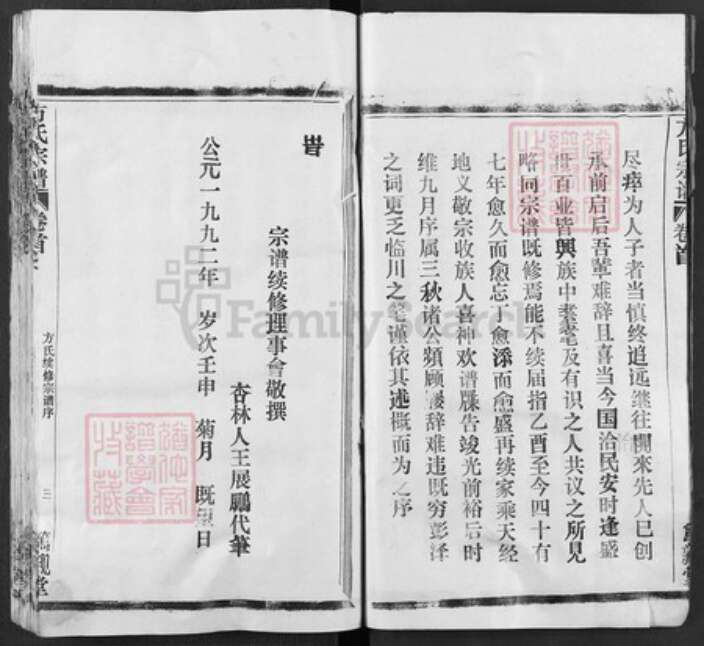 尽瘁为人子者当慎终追远继往開來先人已创
承前启后吾輩难辞且喜当今国洽民安时逢盛
世百业皆興族中耄耋及有识之人共议之所見
略同宗谱既修焉能不续届指乙酉至今四十有
七年愈久而愈忘丁愈添而愈盛再续家乘天经
地义敬宗收族人喜神欢谱牒告竣光前裕后时
维九月序属三秋诸公頻顾屡辞难违既穷彭泽
之词更乏临川之笔谨依其述概而为之序
宗谱续修理事會敬撰
杏林人王展鵬代筆
公元一九九二年 岁次壬申 菊月 既望日
方氏宗谱 卷首
方氏续修宗谱序
三
FamilySearch